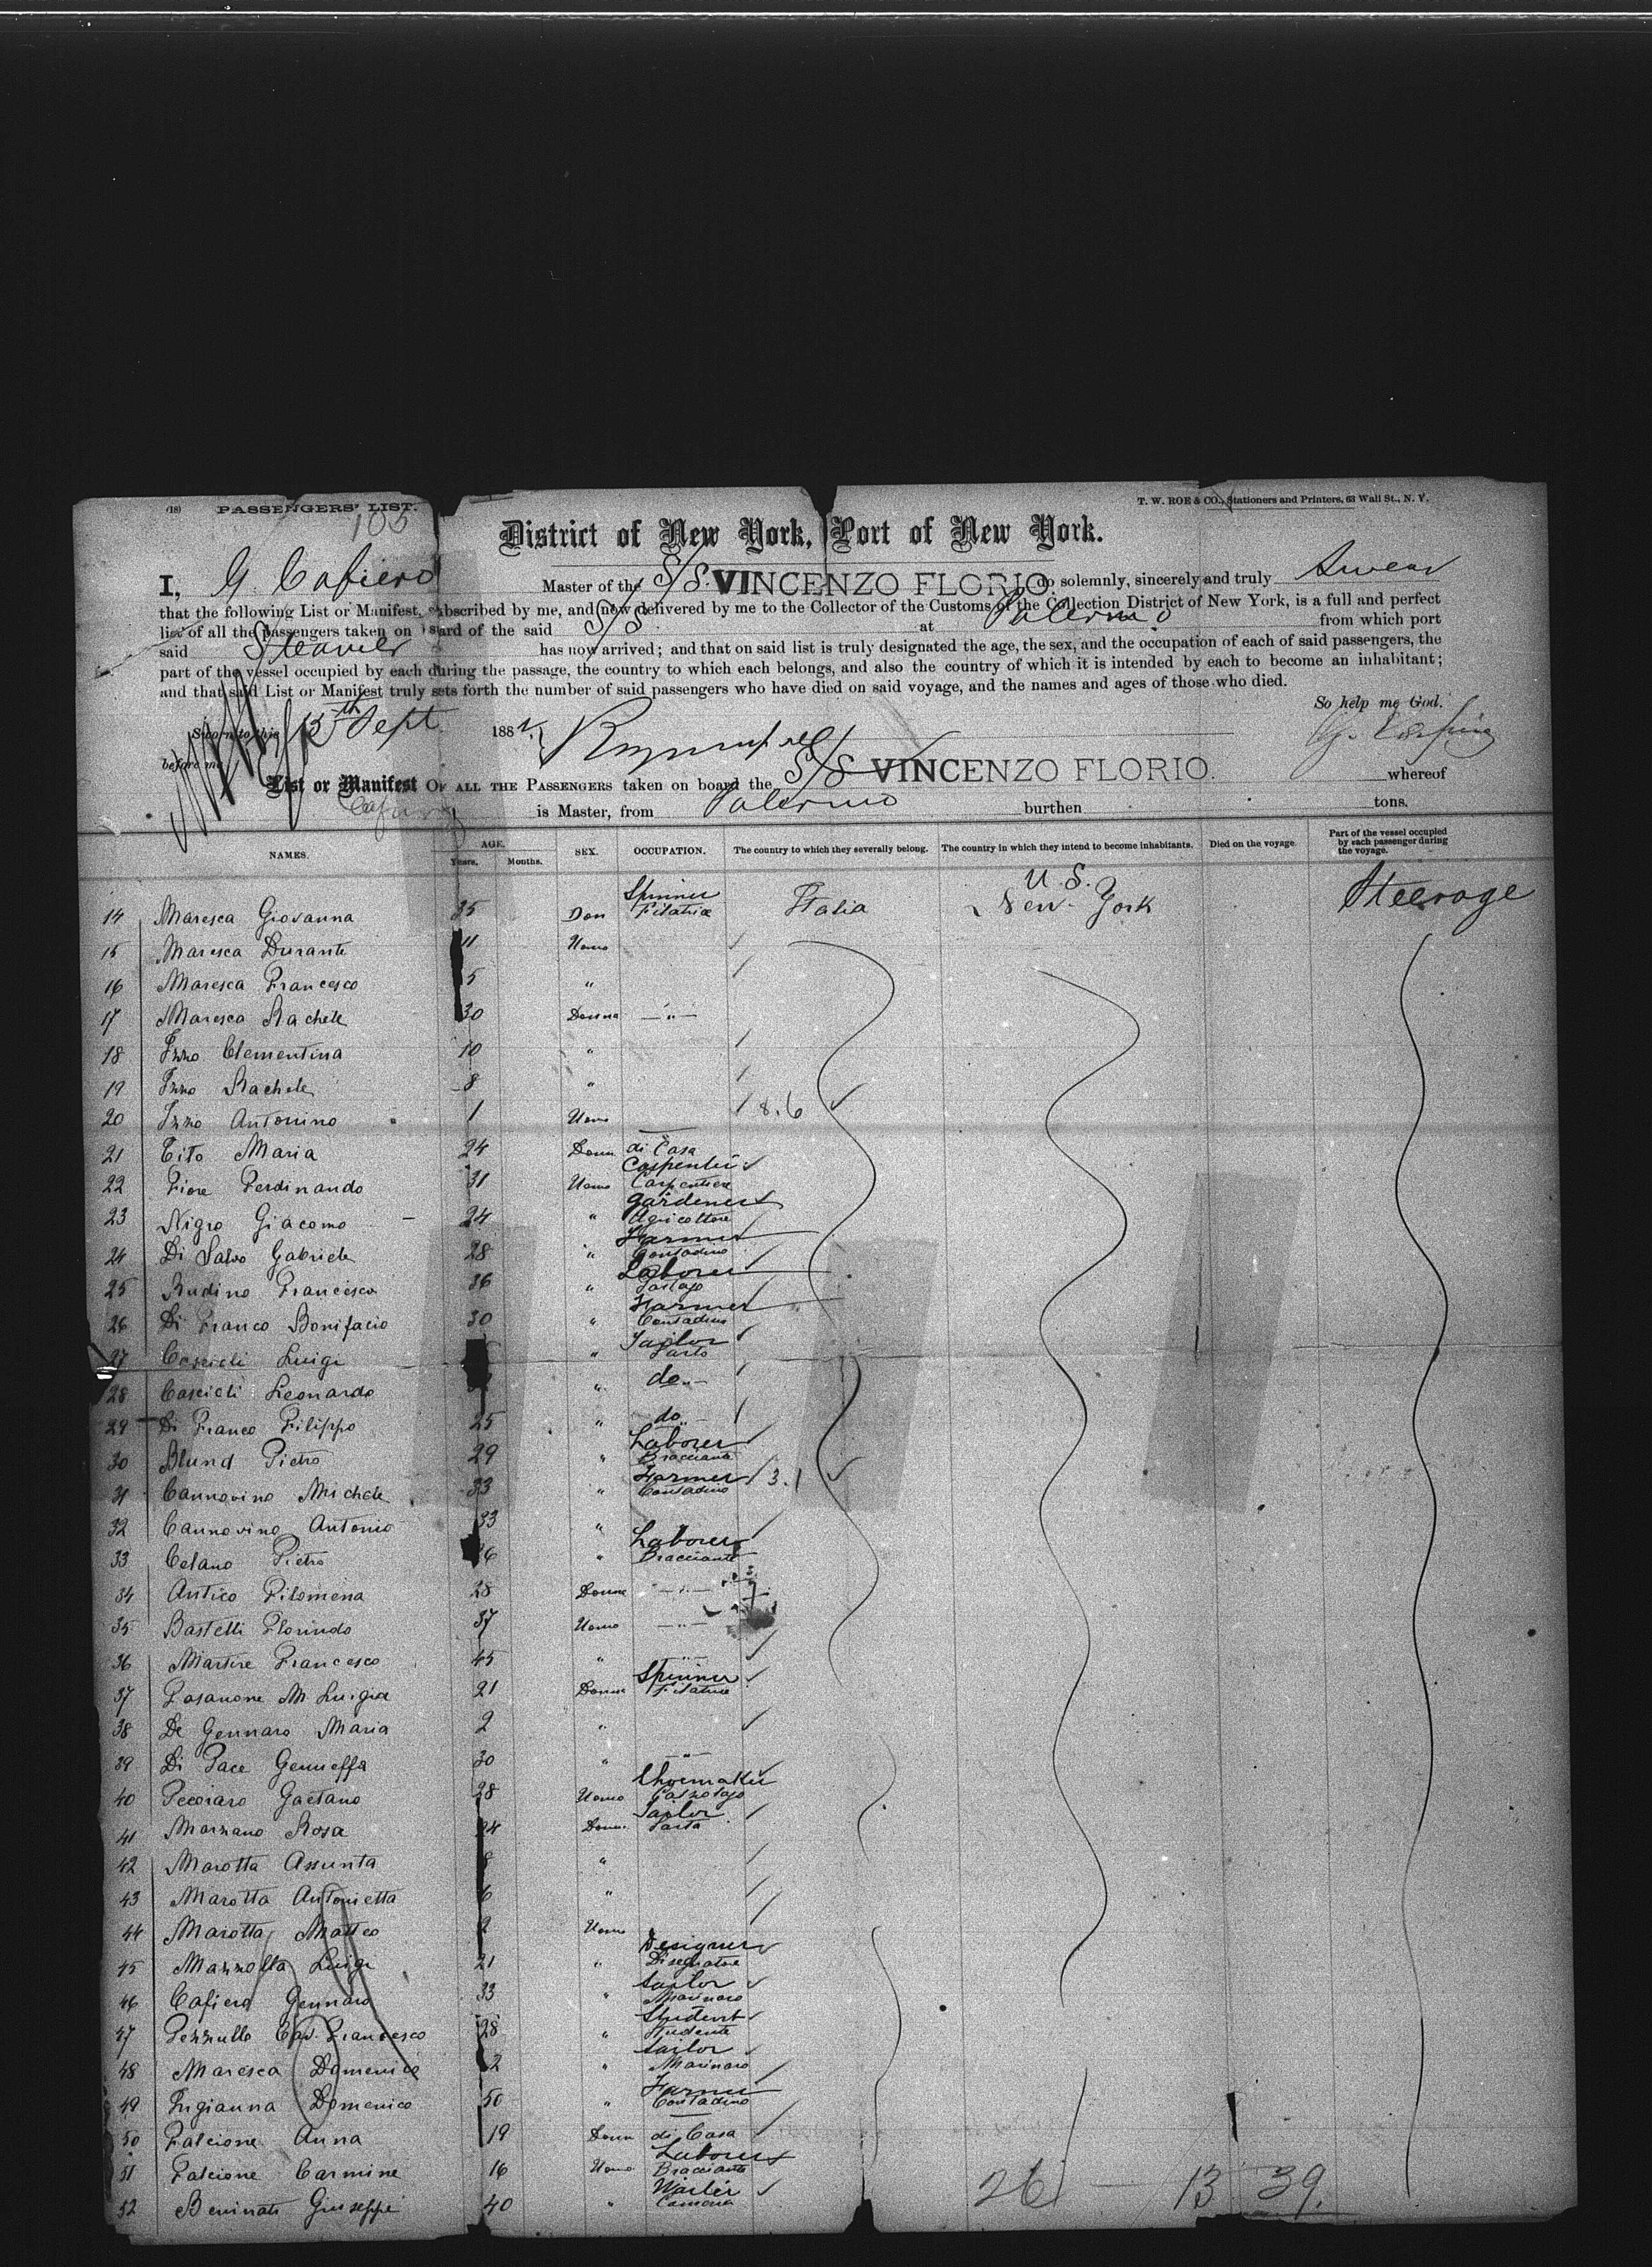 (18) PASSENGERS' LIST. T. W. ROE & CO., Stationers and Printers, 63 Wall St., N. Y.
105
District of New York, Port of New York.
I, G. Cafiero Master of the S/S. VINCENZO FLORIO. do solemnly, sincerely and truly Swear
that the following List or Manifest, subscribed by me, and now delivered by me to the Collector of the Customs of the Collection District of New York, is a full and perfect
list of all the passengers taken on board of the said S/S at Palermo from which port
said Steamer has now arrived; and that on said list is truly designated the age, the sex, and the occupation of each of said passengers, the
part of the vessel occupied by each during the passage, the country to which each belongs, and also the country of which it is intended by each to become an inhabitant;
and that said List or Manifest truly sets forth the number of said passengers who have died on said voyage, and the names and ages of those who died.
So help me God.
Sworn to this 13th Sept 188
before me
List or Manifest OF ALL THE PASSENGERS taken on board the S/S VINCENZO FLORIO. whereof
is Master, from Palermo burthen tons.
NAMES. AGE. Years. Months. SEX. OCCUPATION. The country to which they severally belong. The country in which they intend to become inhabitants. Died on the voyage Part of the vessel occupied by each passenger during the voyage.
14 Maresca Giovanna 35 Don Spinner Filatrice Italia U. S. New-York Steerage
15 Maresca Durante 11 Uomo
16 Maresca Francesco 5 "
17 Maresca Rachele 30 Donna — " —
18 Izzo Clementina 10 "
19 Izzo Rachele 8 "
20 Izzo Antonino 1 Uomo 8.6
21 Tito Maria 24 Donn di Casa
22 Fiore Ferdinando 31 Uomo Carpenter Carpentiere
23 Nigro Giacomo 24 " gardener Agricoltore
24 Di Salvo Gabriele 28 " Farmer Contadino
25 Rudino Francesco 36 " Laborer
26 Di Franco Bonifacio 30 " Farmer Contadino
27 Cascioli Luigi " Taylor Sarto
28 Cascioli Leonardo " do
29 Di Franco Filippo 25 " do
30 Blund Pietro 29 " Laborer Bracciante
31 Cannovino Michele 33 " Farmer Contadino 3.1
32 Cannovino Antonio 33 " "
33 Celano Pietro 36 " Laborer Bracciante
34 Antico Filomena 28 Donna — " —
35 Bastelli Florindo 37 Uomo — " —
36 Martire Francesco 45 " "
37 Pasanone M Luigia 21 Donna Spinner Filatrice
38 De Gennaro Maria 2 "
39 Di Pace Genneffa 30 " — " —
40 Pecoraro Gaetano 28 Uomo Shoemaker Calzolajo
41 Marzano Rosa 24 Donna Taylor Sarta
42 Marotta Assunta 8 "
43 Marotta Antonietta 6 "
44 Marotta Matteo 2 Uomo
45 Mazzolla Luigi 21 " Designer Disegnatore
46 Cafiero Gennaro 33 " Sailor Marinaro
47 Pezzullo Cav. Francesco 28 " Student Studente
48 Maresca Domenico 2 " Sailor Marinaro
49 Ingianna Domenico 50 " Farmer Contadino
50 Falcione Anna 19 Donn di Casa
51 Falcione Carmine 16 Uomo Laborer Bracciante
52 Beninati Giuseppe 40 " Waiter
26 — 13 39.